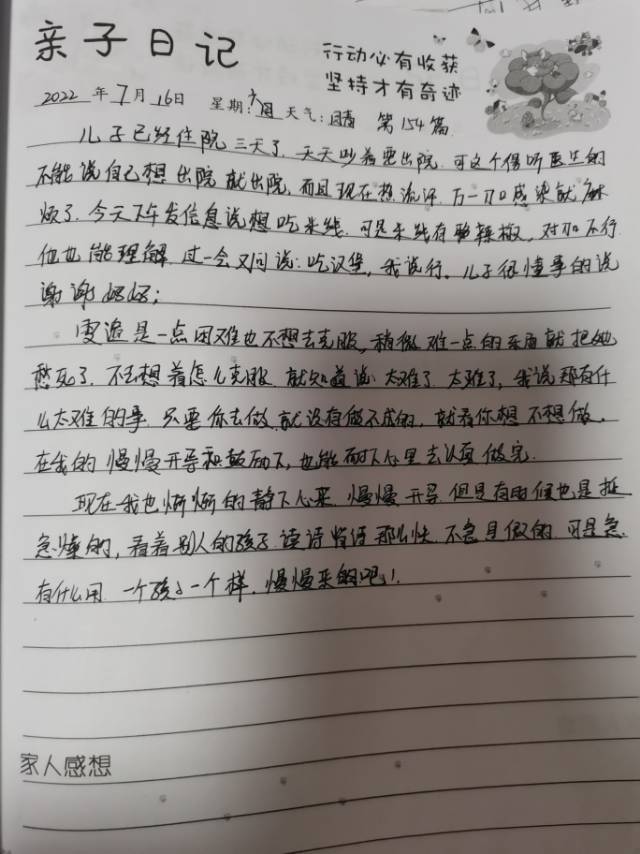 亲子日记
行动必有收获
坚持才有奇迹
2022年7月16日 星期:六 天气:晴 第154篇
儿子已经住院三天了.天天吵着要出院.可这个得听医生的
不能说自己想出院就出院.而且现在想流评.万一加感染就麻
烦了.今天下午发信息说想吃米线.可是米线有那辣椒,对加不行
他也能理解.过一会又问说:吃汉堡,我说行.儿子很懂事的说
谢谢妈妈;
是一点困难也不想去克服,稍微难一点的东西就把她
愁死了.不去想着怎么克服.就知道说:太难了.太难了,我说那有什
么太难的事.只要你去做.就没有做不成的,就看你想不想做.
在我的慢慢开导和鼓励下,也能耐下心里去认真做完.
现在我也渐渐的静下心来.慢慢开导.但是有时候也是挺
急燥的,看着别人的孩子.读诗背诗那么快.不急是假的.可是急.
有什么用.一个孩子一个样.慢慢来的吧!.
家人感想